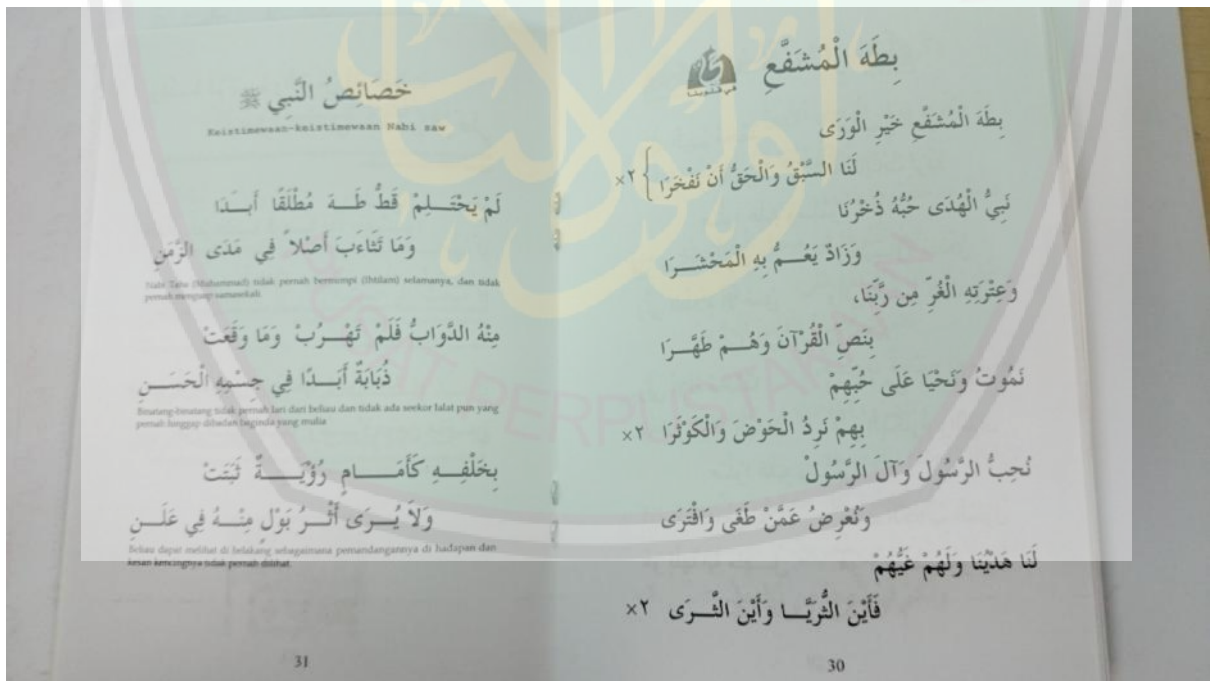 بِطَهَ الْمُشَفَّعِ
في قلوبنا
بِطَهَ الْمُشَفَّعِ خَيْرِ الْوَرَى
لَنَا السَّبْقُ وَالْحَقُّ أَنْ نَفْخَرَا } ٢×
نَبِيُّ الْهُدَى حُبُّهُ ذُخْرُنَا
وَزَادٌ يَعُــمُّ بِهِ الْمَحْشَــرَا
وَعِتْرَتِهِ الْغُرِّ مِن رَّبِّنَا،
بِنَصِّ الْقُرْآنَ وَهُــمْ طَهَّــرَا
نَمُوتُ وَنَحْيَا عَلَى حُبِّهِمْ
بِهِمْ نَرِدُ الْحَوْضَ وَالْكَوْثَرَا ٢×
نُحِبُّ الرَّسُولَ وَآلَ الرَّسُولْ
وَنُعْرِضُ عَمَّنْ طَغَى وَافْتَرَى
لَنَا هَدْيُنَا وَلَهُمْ غَيُّهُمْ
فَأَيْنَ الثُّرَيَّــا وَأَيْنَ الثَّــرَى ٢×
30
خَصَائِصُ النَّبِي ﷺ
Keistimewaan-keistimewaan Nabi saw
لَمْ يَحْتَــلِمْ قَطُّ طَــهَ مُطْلَقًا أَبــدَا
وَمَا تَثَاءَبَ أَصْلاً فِي مَدَى الزَّمَنِ
Nabi Taha (Muhammad) tidak pernah bermimpi (Ihtilam) selamanya, dan tidak
pernah menguap samasekali.
مِنْهُ الدَّوَابُّ فَلَمْ تَهْــرُبْ وَمَا وَقَعَتْ
ذُبَابَةٌ أَبَــدًا فِي جِسْمِهِ الْحَسَــنِ
Binatang-binatang tidak pernah lari dari beliau dan tidak ada seekor lalat pun yang
pernah hinggap dibadan baginda yang mulia
بِخَلْفِــهِ كَأَمَــــامٍ رُؤْيَــــةٌ ثَبَتَتْ
وَلاَ يُــرَى أَثْــرُ بَوْلٍ مِنْــهُ فِي عَلَــنِ
Beliau dapat melihat di belakang sebagaimana pemandangannya di hadapan dan
kesan kencingnya tidak pernah dilihat.
31
PUSAT PERPUSTAKAAN